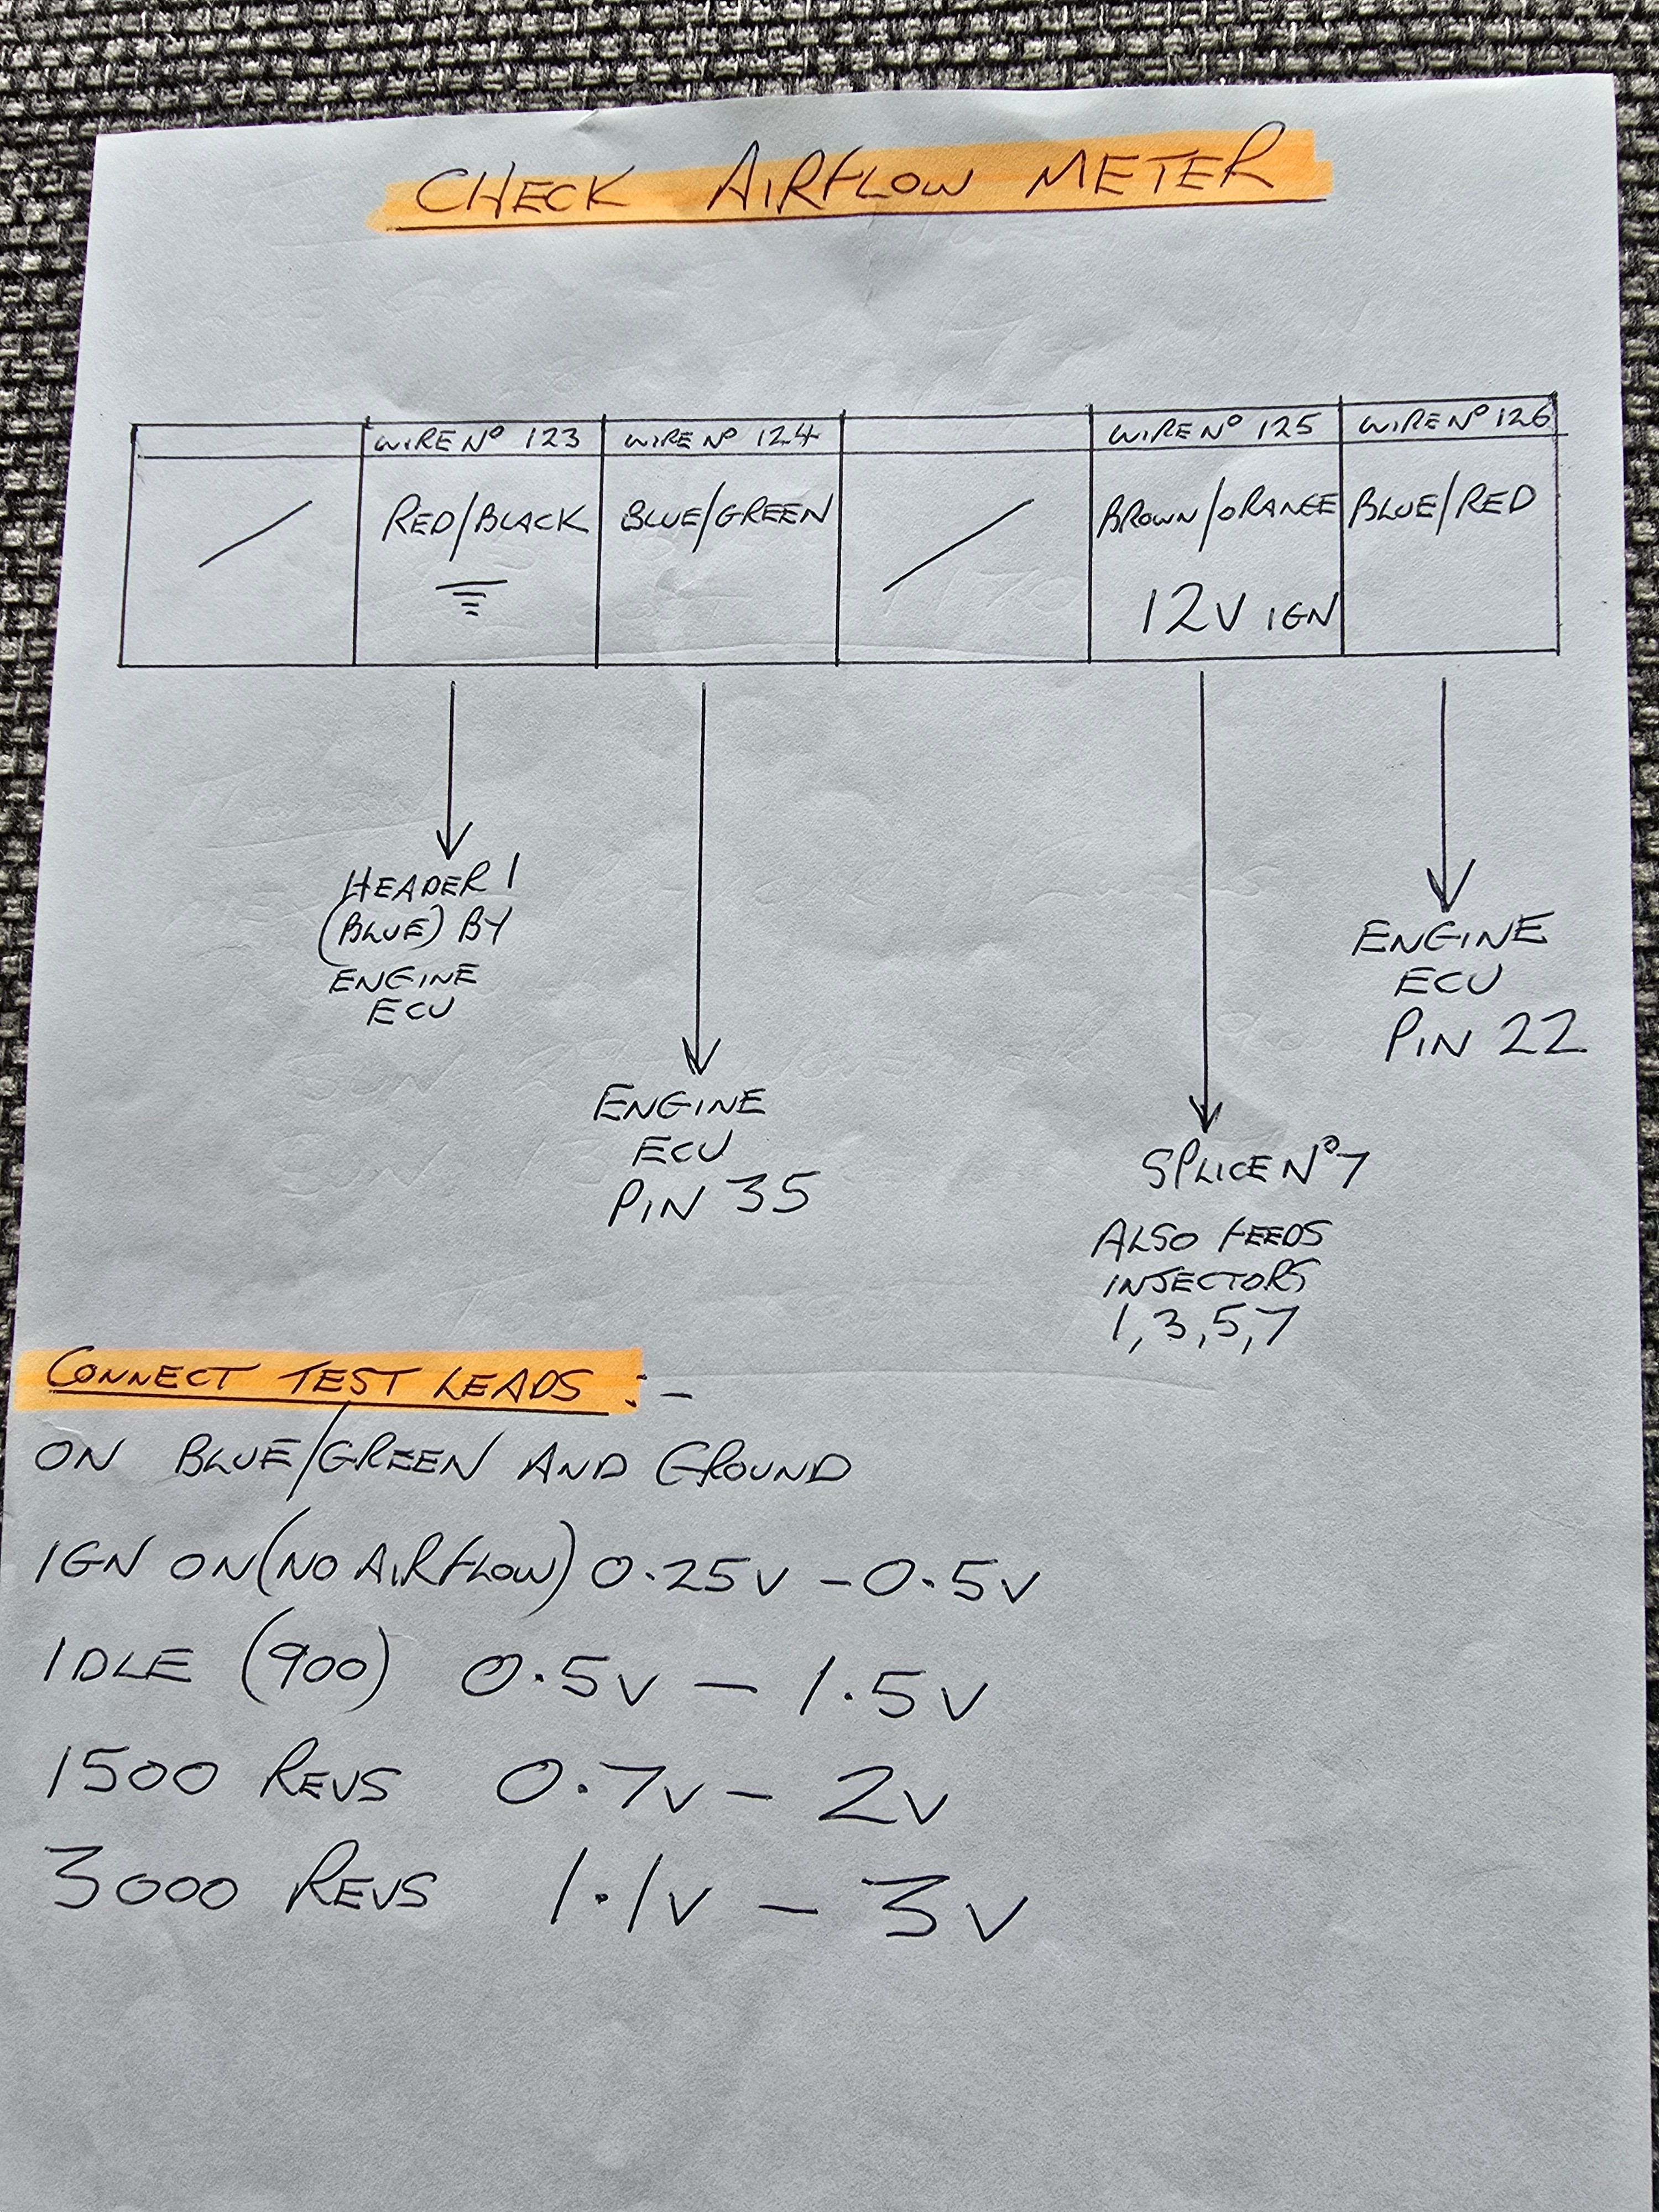 CHECK AIRFLOW METER
WIRE Nº 123
WIRE Nº 124
WIRE Nº 125
WIRE Nº 126
RED/BLACK
BLUE/GREEN
BROWN/ORANGE
BLUE/RED
12V IGN
HEADER 1
(BLUE) BY
ENGINE
ECU
ENGINE
ECU
PIN 35
SPLICE Nº 7
ALSO FEEDS
INJECTORS
1,3,5,7
ENGINE
ECU
PIN 22
CONNECT TEST LEADS :-
ON BLUE/GREEN AND GROUND
IGN ON (NO AIRFLOW) 0.25V - 0.5V
IDLE (900) 0.5V - 1.5V
1500 REVS 0.7V - 2V
3000 REVS 1.1V - 3V